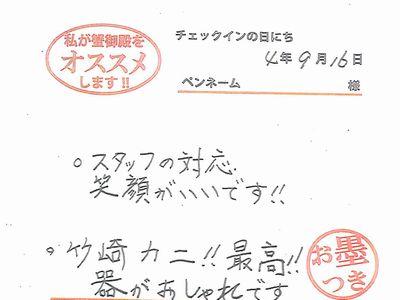 私が蟹御殿を
オススメ
します!!
チェックインの日にち
4年9月16日
ペンネーム 様
。スタッフの対応
笑顔がいいです!!
。竹崎カニ!!最高!!
器がおしゃれです
お墨
つき